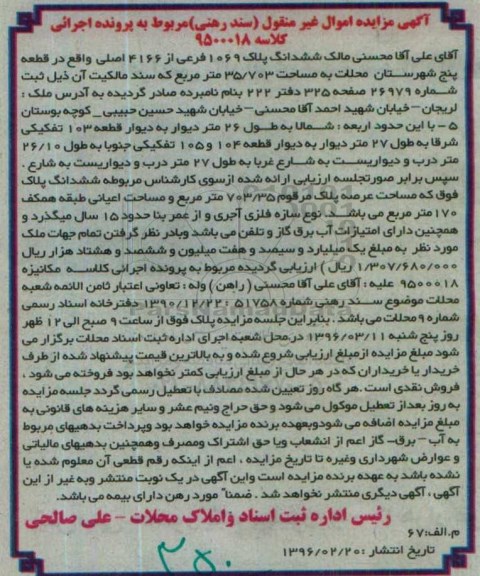 آگهی مزایده اموال غیر منقول (سند رهنی)مربوط به پرونده اجرائی
کلاسه ۹۵۰۰۰۱۸
آقای علی آقا محسنی مالک ششدانگ پلاک ۱۰۶۹ فرعی از ۴۱۶۶ اصلی واقع در قطعه
پنج شهرستان محلات به مساحت ۳۵/۷۰۳ متر مربع که سند مالکیت آن ذیل ثبت
شماره ۲۶۹۷۹ صفحه ۳۲۵ دفتر ۲۲۲ بنام نامبرده صادر گردیده به آدرس ملک :
لریجان – خیابان شهید احمد آقا محسنی – خیابان شهید حسین حبیبی _ کوچه بوستان
۵ – با این حدود اربعه : شمالا به طول ۲۶ متر دیوار به دیوار قطعه ۱۰۳ تفکیکی
شرقا به طول ۲۷ متر دیوار به دیوار قطعه ۱۰۴ و ۱۰۵ تفکیکی جنوبا به طول ۲۶/۱۰
متر درب و دیواریست به شارع غربا به طول ۲۷ متر درب و دیواریست به شارع .
سپس برابر صورتجلسه ارزیابی ارائه شده ازسوی کارشناس مربوطه ششدانگ پلاک
فوق که مساحت عرصه پلاک مرقوم ۷۰۳/۳۵ متر مربع و مساحت اعیانی طبقه همکف
۱۷۰ متر مربع می باشد نوع سازه فلزی آجری و از عمر بنا حدود ۱۵ سال میگذرد و
همچنین دارای امتیازات آب برق گاز و تلفن می باشد وبادر نظر گرفتن تمام جهات ملک
مورد نظر به مبلغ یک میلیارد و سیصد و هفت میلیون و ششصد و هشتاد هزار ریال
۱/۳۰۷/۶۸۰/۰۰۰ ریال ) ارزیابی گردیده مربوط به پرونده اجرائی کلاسه مکانیزه
۹۵۰۰۰۱۸ علیه : آقای علی آقا محسنی ( راهن ) وله : تعاونی اعتبار ثامن الائمه شعبه
محلات موضوع سند رهنی شماره ۵۱۷۵۸ : ۱۳۹۰/۱۲/۲۲ دفترخانه اسناد رسمی
شماره ۹ محلات می باشد . بنابر این جلسه مزایده پلاک فوق از ساعت ۹ صبح الی ۱۲ ظهر
روز پنج شنبه ۱۳۹۶/۰۳/۱۱ در محل شعبه اجرای اداره ثبت اسناد محلات برگزار می
شود مبلغ مزایده ازمبلغ ارزیابی شروع شده و به بالاترین قیمت پیشنهاد شده از طرف
خریدار یا خریداران که در هر حال از مبلغ ارزیابی کمتر نخواهد بود فروخته می شود .
فروش نقدی است . هر گاه روز تعیین شده مصادف با تعطیل رسمی گردد جلسه مزایده
به روز بعد از تعطیل موکول می شود و حق حراج ونیم عشر و سایر هزینه های قانونی به
مبلغ مزایده اضافه می شود وبعهده برنده مزایده خواهد بود وپرداخت بدهیهای مربوط
به آب – برق – گاز اعم از انشعاب ویا حق اشتراک ومصرف وهمچنین بدهیهای مالیاتی
و عوارض شهرداری وغیره تا تاریخ مزایده ، اعم از اینکه رقم قطعی آن معلوم شده یا
نشده باشد به عهده برنده مزایده است واین آگهی در یک نوبت منتشر وبه غیر از این
آگهی ، آگهی دیگری منتشر نخواهد شد . ضمنا" مورد رهن دارای بیمه می باشد.
رئیس اداره ثبت اسناد واملاک محلات – علی صالحی
م.الف:۶۷
تاریخ انتشار :۱۳۹۶/۰۲/۲۰